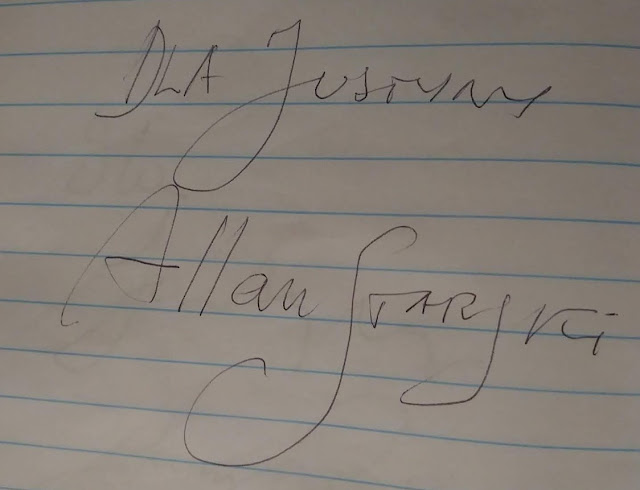 DLA JUSTYNY
Allan STARSKi